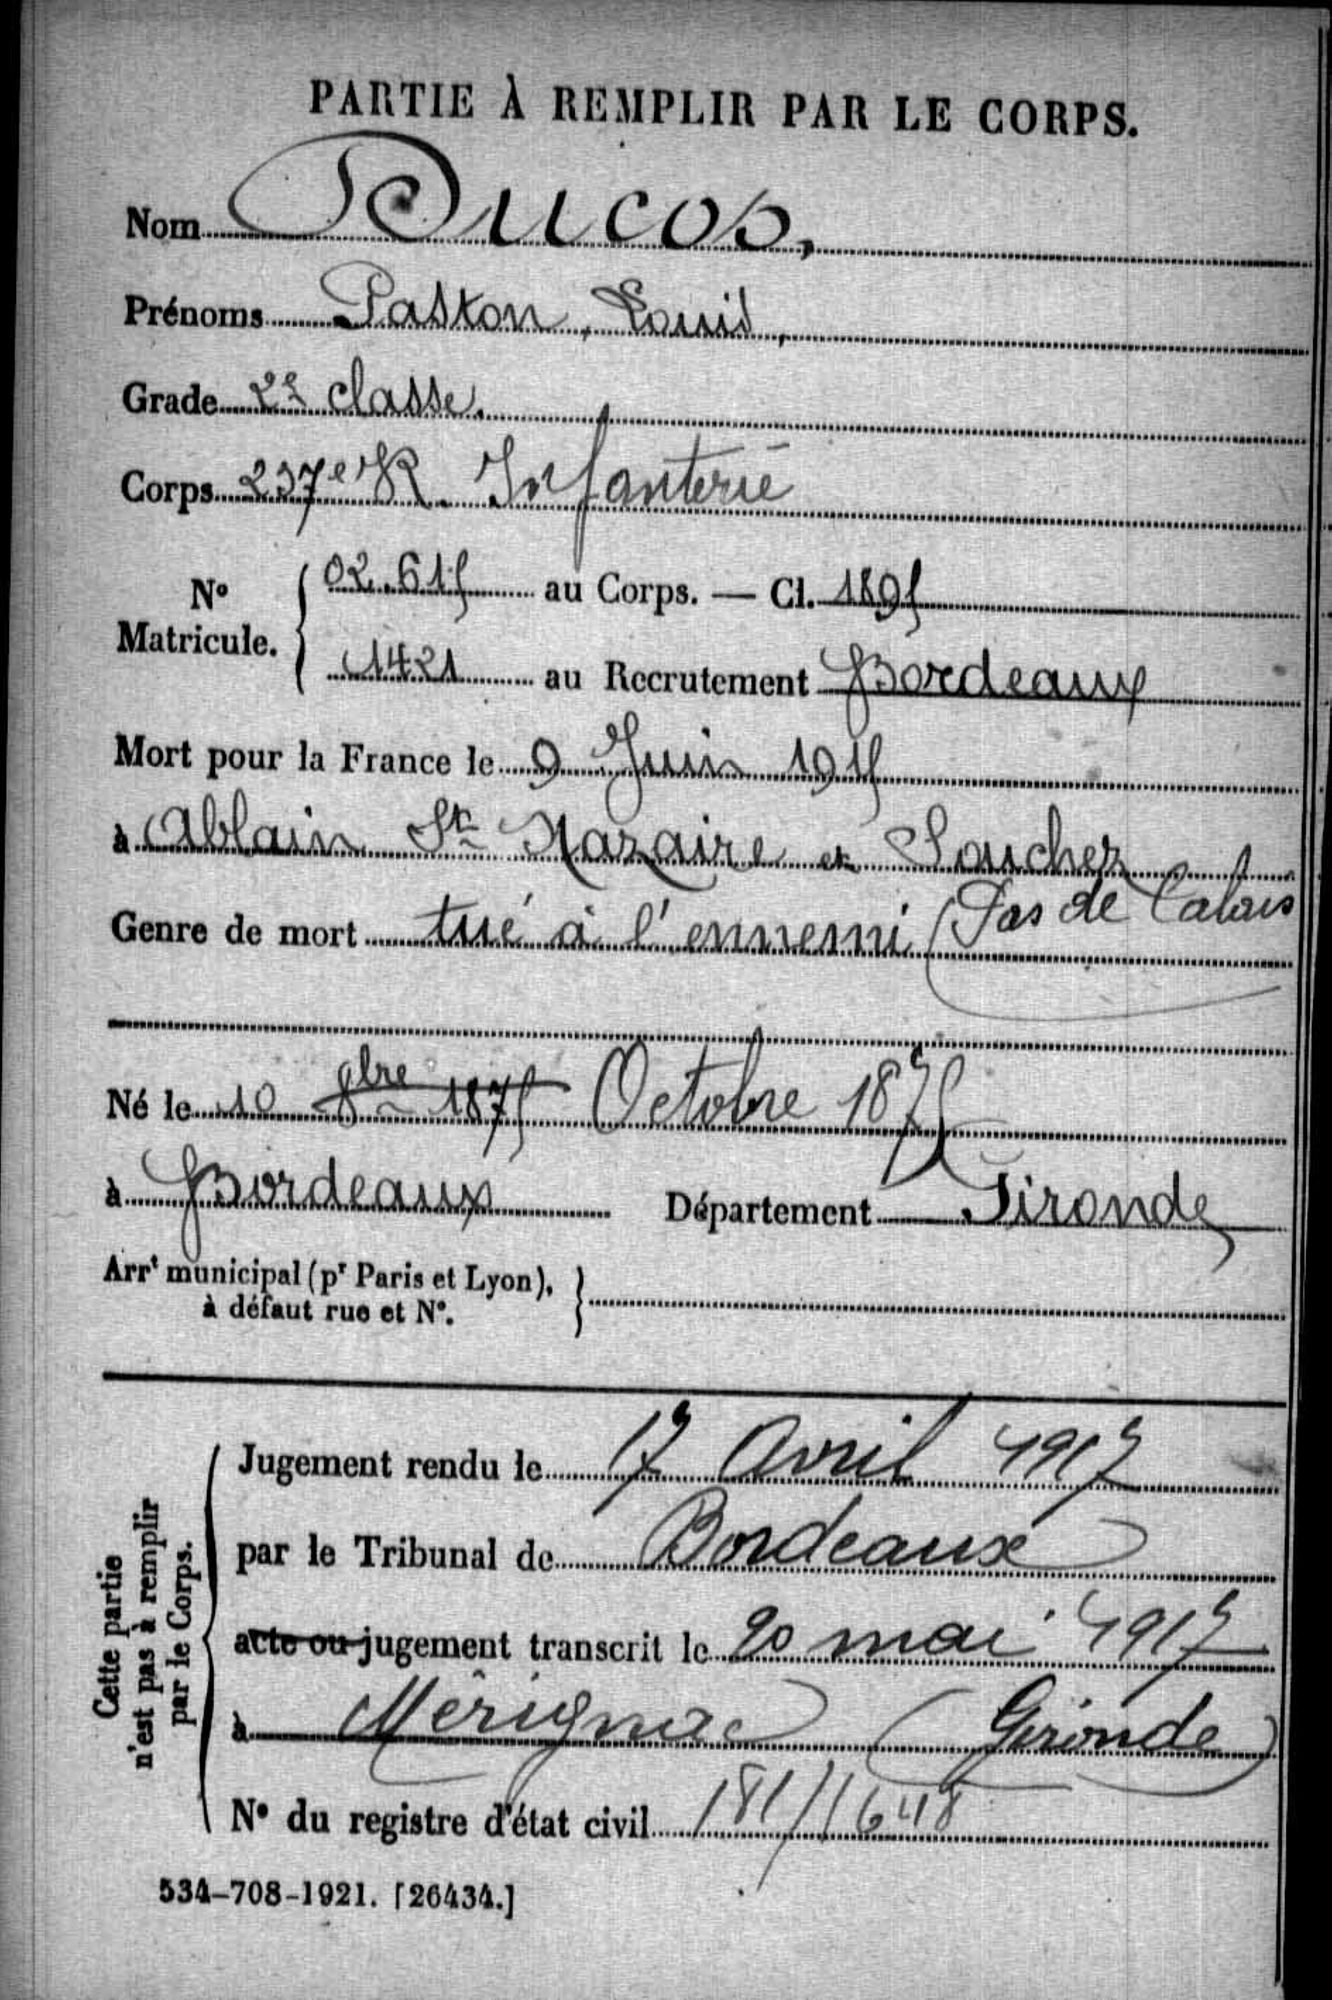 PARTIE À REMPLIR PAR LE CORPS.
Nom Ducos,
Prénoms Gaston, Louis,
Grade 2e classe.
Corps 237e R. Infanterie
No Matricule. 02.615 au Corps. — Cl. 1895
1421 au Recrutement Bordeaux
Mort pour la France le 9 Juin 1915
à Ablain St Nazaire et Souchez
(Pas de Calais
Genre de mort tué à l'ennemi
Né le 10 8bre 1875 Octobre 1875
à Bordeaux Département Gironde
Arrt municipal (pr Paris et Lyon),
à défaut rue et No.
Cette partie
n'est pas à remplir
par le Corps.
Jugement rendu le 17 Avril 1917
par le Tribunal de Bordeaux
acte ou jugement transcrit le 20 mai 1917
à Mérignac (Gironde)
No du registre d'état civil 181/1648
534-708-1921. [26434.]